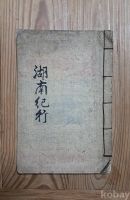 湖南紀行
kobay